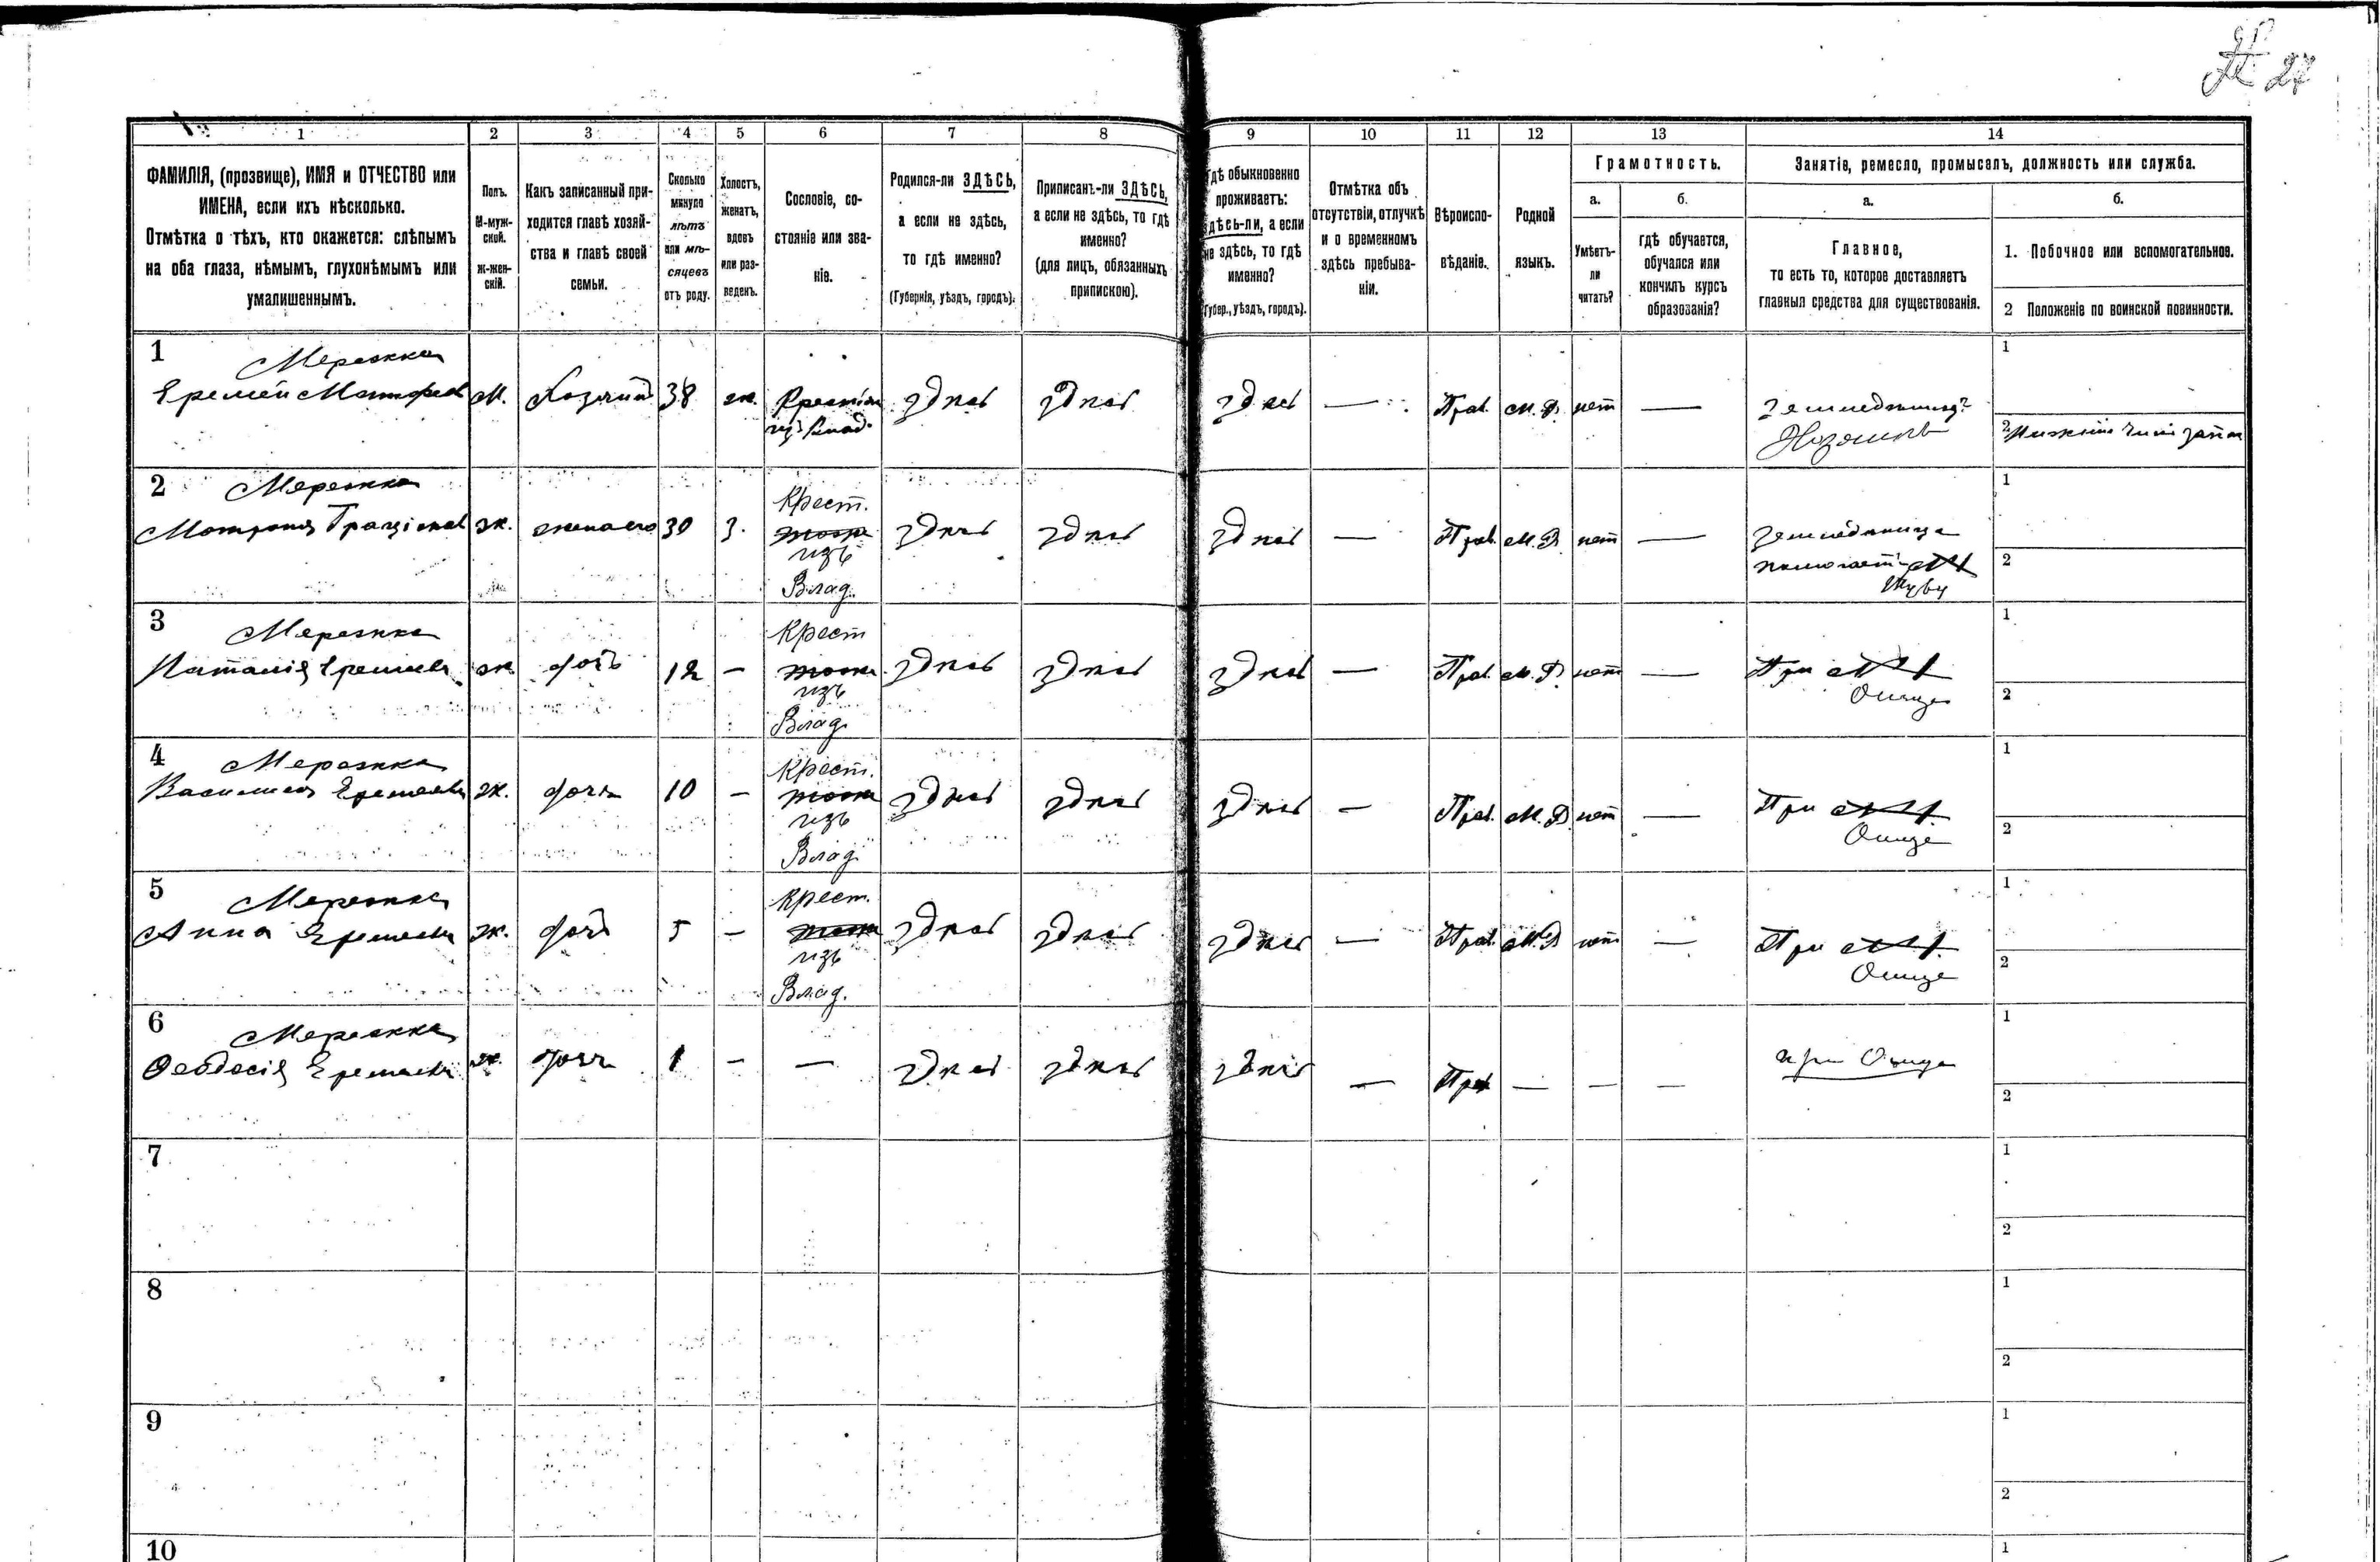 27
1 2 3 4 5 6 7 8 9 10 11 12 13 14
ФАМИЛІЯ, (прозвище), ИМЯ и ОТЧЕСТВО или
ИМЕНА, если ихъ нѣсколько.
Отмѣтка о тѣхъ, кто окажется: слѣпымъ
на оба глаза, нѣмымъ, глухонѣмымъ или
умалишеннымъ.
Полъ.
М-муж-
ской.
ж-жен-
скій.
Какъ записанный при-
ходится главѣ хозяй-
ства и главѣ своей
семьи.
Сколько
минуло
лѣтъ
или мѣ-
сяцевъ
отъ роду.
Холостъ,
женатъ,
вдовъ
или раз-
веденъ.
Сословіе, со-
стояніе или зва-
ніе.
Родился-ли ЗДѢСЬ,
а если не здѣсь,
то гдѣ именно?
(Губернія, уѣздъ, городъ).
Приписанъ-ли ЗДѢСЬ,
а если не здѣсь, то гдѣ
именно?
(для лицъ, обязанныхъ
припискою).
гдѣ обыкновенно
проживаетъ:
здѣсь-ли, а если
не здѣсь, то гдѣ
именно?
Губер., уѣздъ, городъ).
Отмѣтка объ
отсутствіи, отлучкѣ
и о временномъ
здѣсь пребыва-
ніи.
Вѣроиспо-
вѣданіе.
Родной
языкъ.
Грамотность.
а.
Умѣетъ-
ли
читать?
б.
гдѣ обучается,
обучался или
кончилъ курсъ
образованія?
Занятіе, ремесло, промыселъ, должность или служба.
а.
Главное,
то есть то, которое доставляетъ
главныя средства для существованія.
б.
1. Побочное или вспомогательное.
2 Положеніе по воинской повинности.
1 Мережка 1
Еремей Матфеев М. Хозяин 38 ж. здѣсь здѣсь здѣсь — Прав. М. Р. нет —
Хозяинъ 2 Нижній чин запаса
2 Мережка Крест. 1
Матрона ж. жена его 30 з. здѣсь здѣсь здѣсь — Прав. М. Р. нет —
изъ помогает 2
Влад. Мужу
3 Мережка Крест 1
Наталія Еремеева ж. дочь 12 — здѣсь здѣсь здѣсь — Прав. М. Р. нет — При
изъ Отце 2
Влад.
4 Мережка Крест. 1
Василиса Еремеева ж. дочь 10 — здѣсь здѣсь здѣсь — Прав. М. Р. нет — При
изъ Отце 2
Влад.
5 Мережка Крест. 1
Анна Еремеева ж. дочь 5 — здѣсь здѣсь здѣсь — Прав. М. Р. нет — При
изъ Отце 2
Влад.
6 Мережка 1
Ѳеодосія Еремеева ж. дочь 1 — — здѣсь здѣсь здѣсь — Прав — — — при Отце
2
7 1
2
8 1
2
9 1
2
10 1